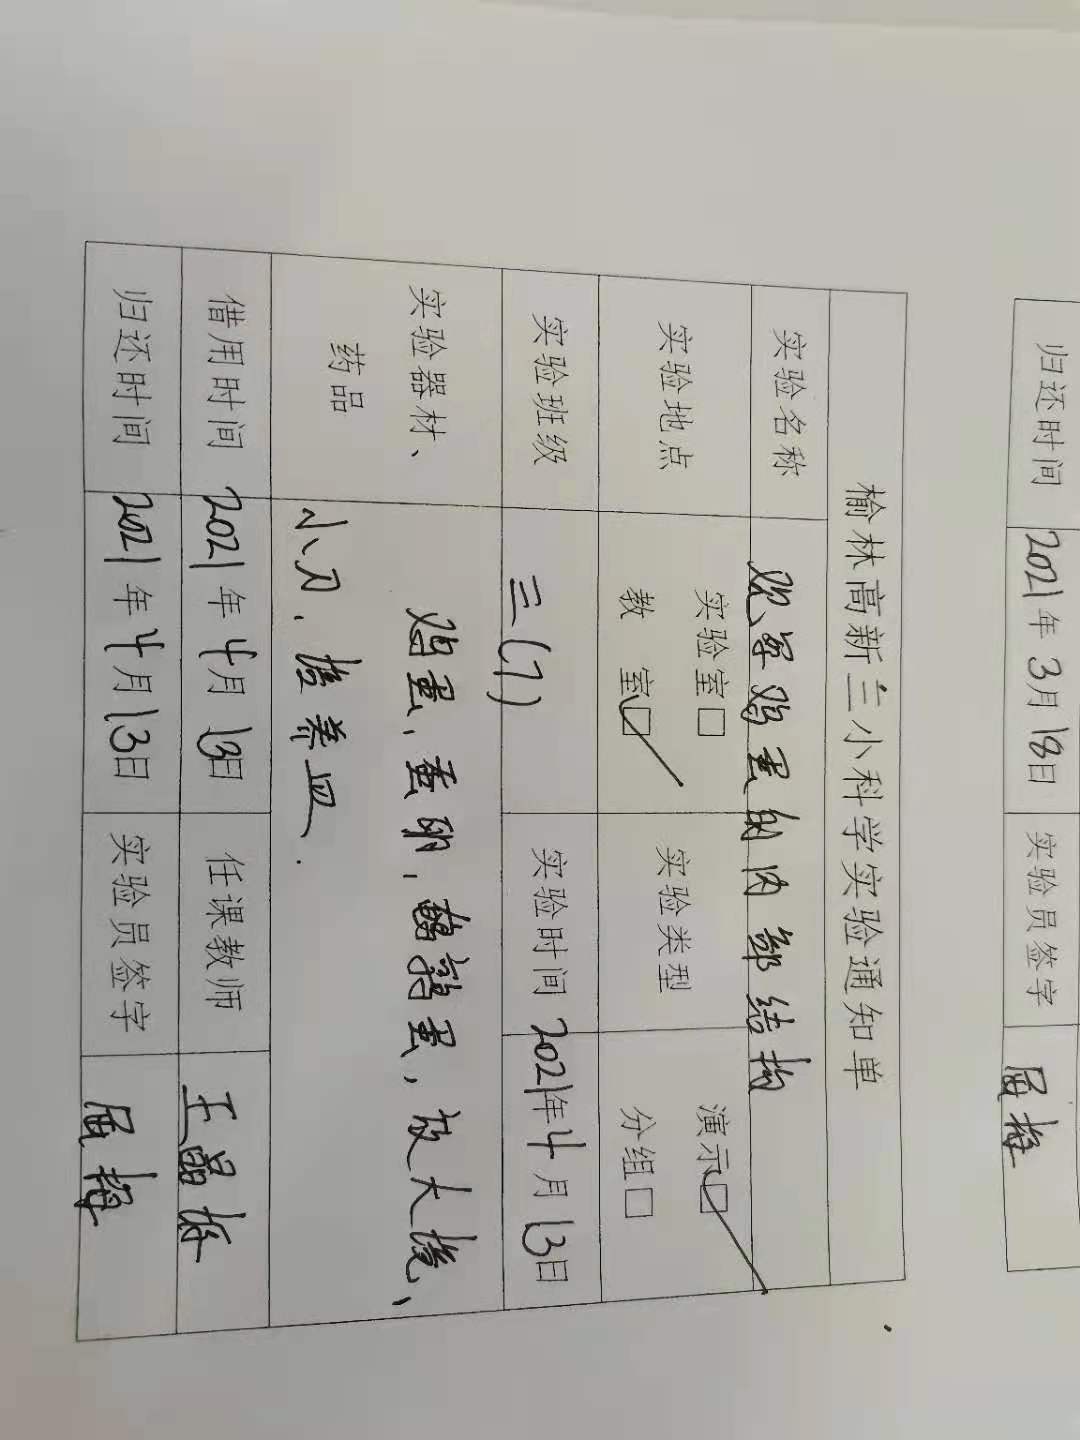 归还时间 2021年3月18日 实验员签字 屈梅
榆林高新三小科学实验通知单
实验名称 观察鸡蛋的内部结构
实验地点 实验室□ 教 室☑ 实验类型 演示☑ 分组□
实验班级 三(7) 实验时间 2021年4月13日
实验器材、药品 鸡蛋,蚕卵,鹌鹑蛋,放大镜、
小刀.培养皿.
借用时间 2021年4月13日 任课教师 王
归还时间 2021年4月13日 实验员签字 屈梅